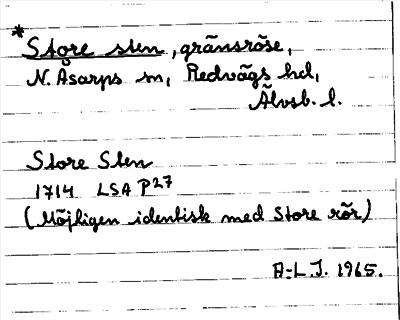 *Store sten, gränsröse,
N. Åsarps sn, Redvägs hd,
Älvsb. l.
Store Sten
1714 LSA P27
(Möjligen identisk med Store rör)
A-L.J. 1965.